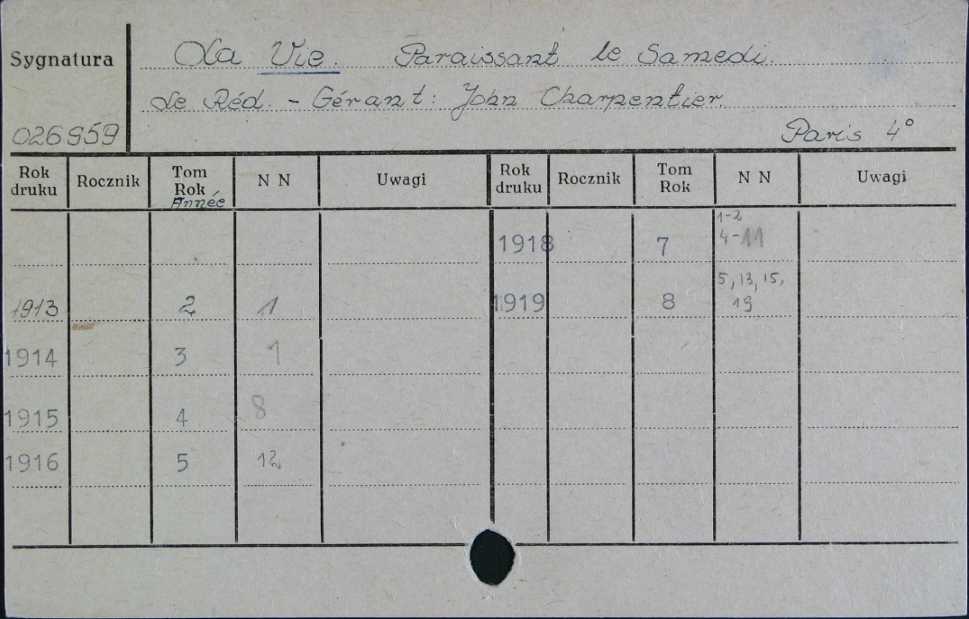 Sygnatura
La Vie. Paraissant le Samedi.
Le Réd. - Gérant: John Charpentier.
026959
Paris 4°
Rok druku Rocznik Tom Rok Année N N Uwagi Rok druku Rocznik Tom Rok N N Uwagi
1918 7 1-2 4-11
1913 2 1 1919 8 5, 13, 15, 19
1914 3 1
1915 4 8
1916 5 12